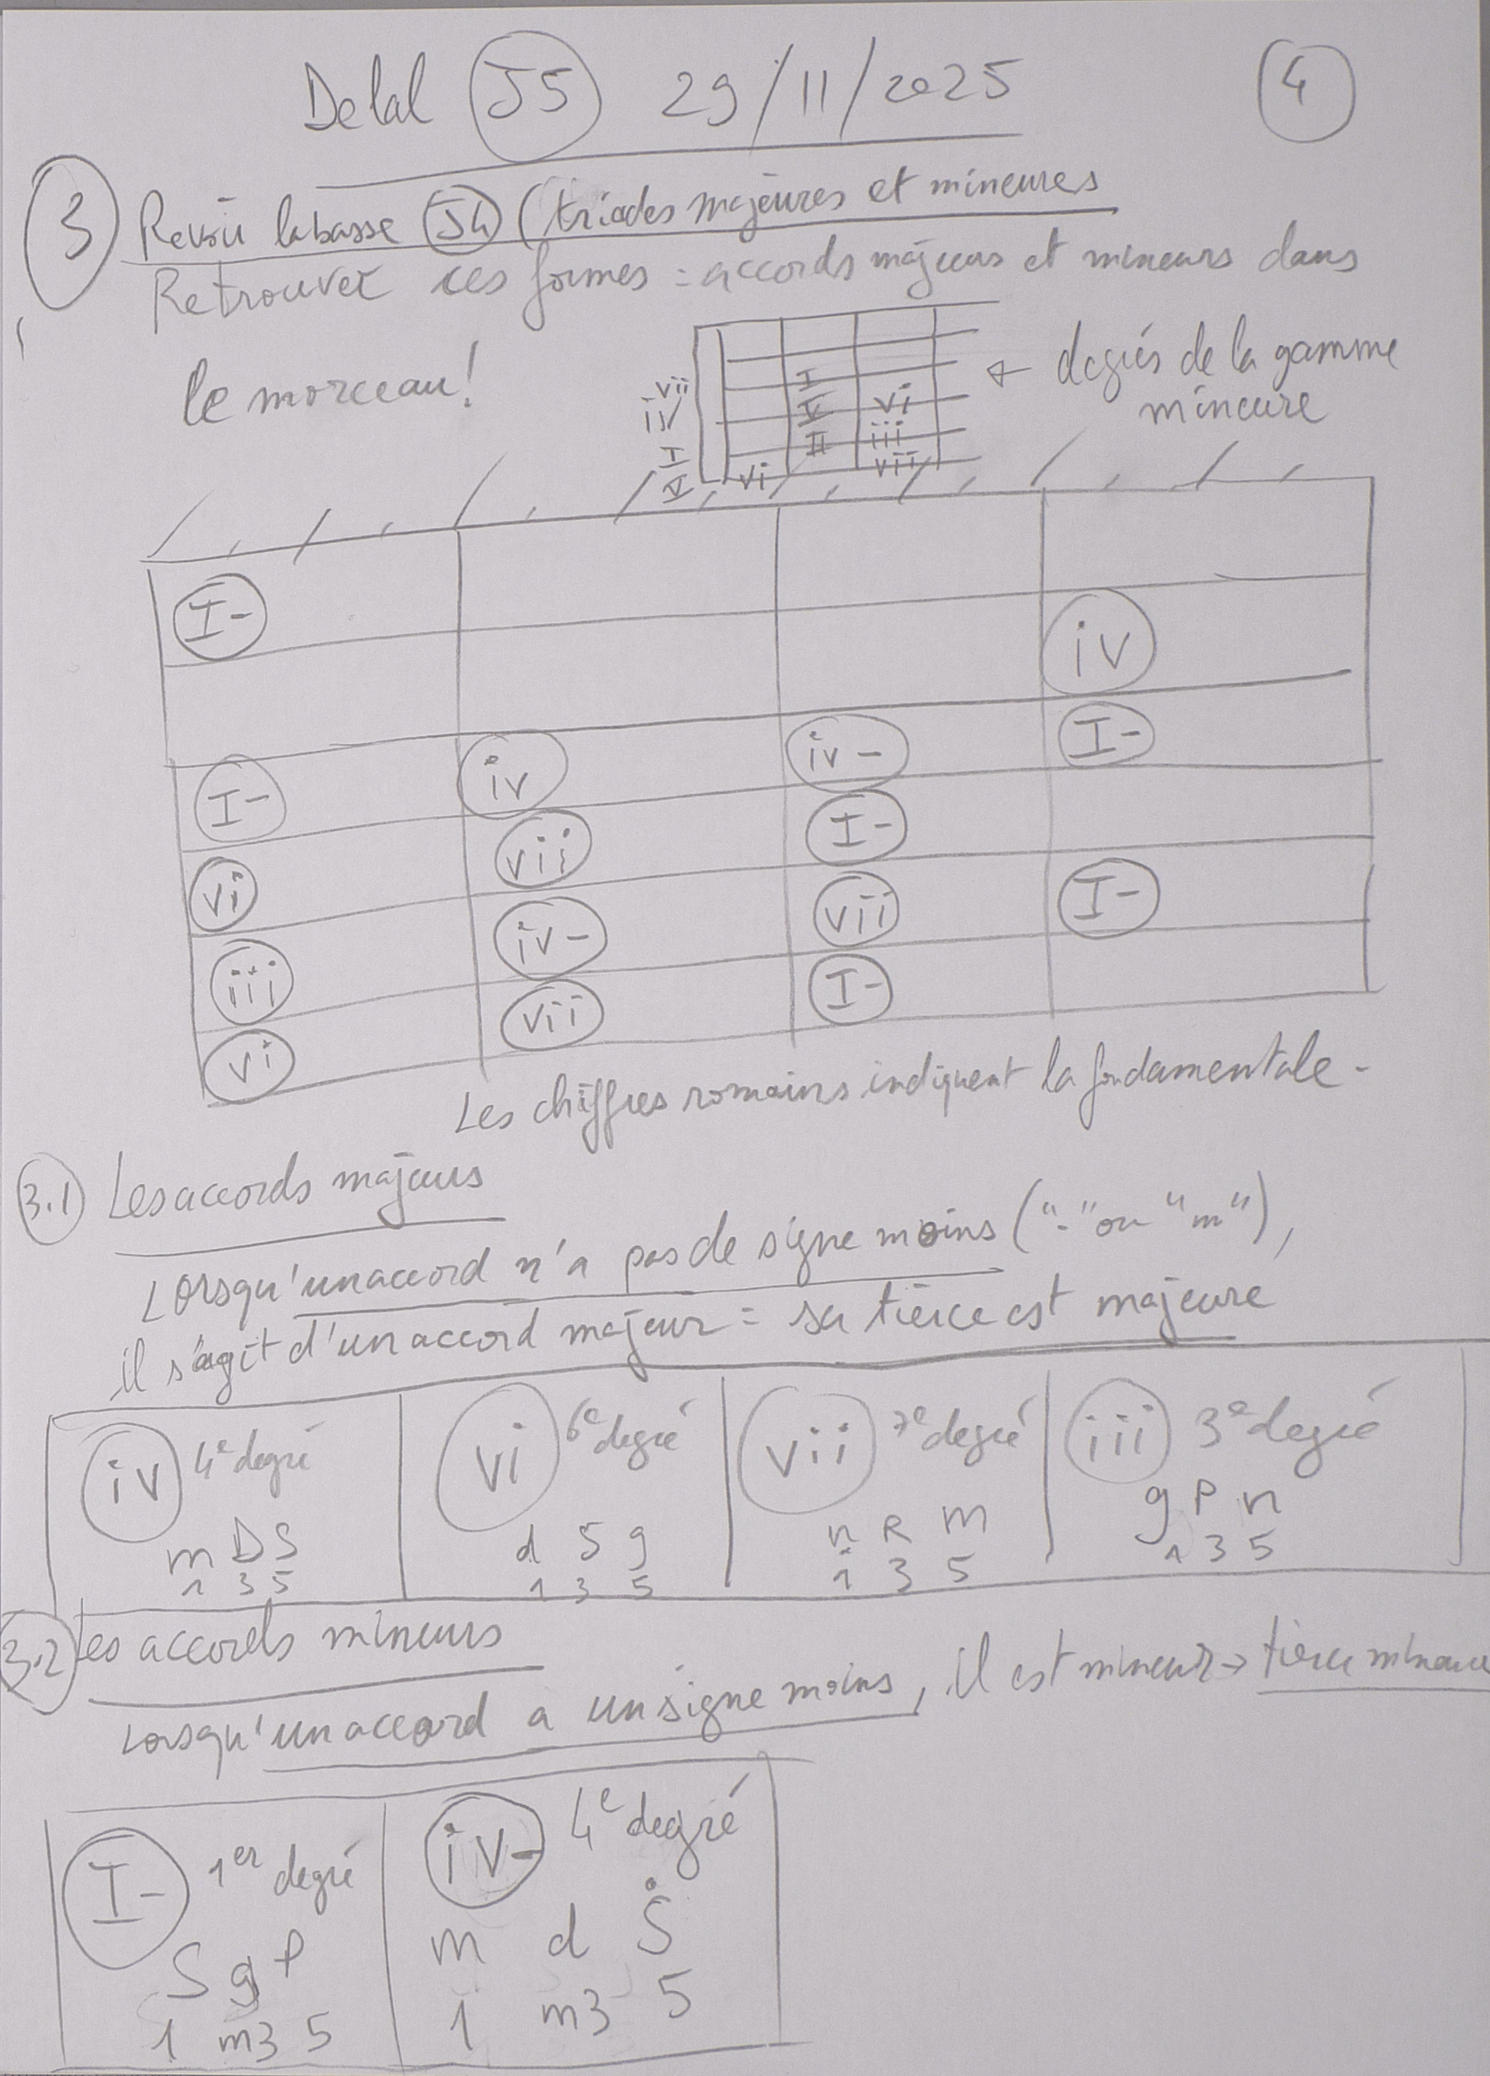 Delal J5 29/11/2025 4
3 Revoir la basse J4 (triades majeures et mineures
Retrouver ces formes = accords majeurs et mineurs dans
le morceau!
← degrés de la gamme
mineure
vii I
iv V vi
I II iii
V vi vii
I-
iv
I- iv iv- I-
vi vii I-
iii iv- vii I-
vi vii I-
Les chiffres romains indiquent la fondamentale.
3.1 Les accords majeurs
Lorsqu'un accord n'a pas de signe moins ("-" ou "m"),
il s'agit d'un accord majeur = sa tierce est majeure
iv 4e degré vi 6e degré vii 7e degré iii 3e degré
m D S d S g n R m g P n
1 3 5 1 3 5 1 3 5 1 3 5
3.2 Les accords mineurs
Lorsqu'un accord a un signe moins, il est mineur → tierce mineure
I- 1er degré iv- 4e degré
S g P m d Ṡ
1 m3 5 1 m3 5